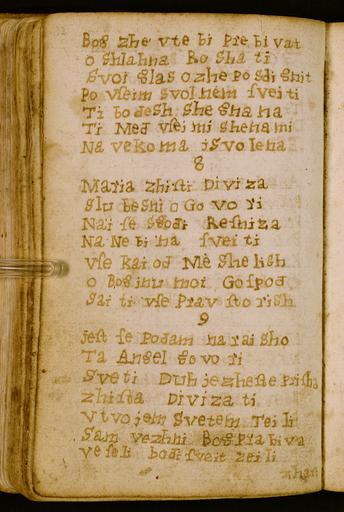 Bog zhe vte bi Pre bi vat
o shlahna Ro sha ti
Svoi glas ozhe Po sdi gnit
Po vseim svolnem svei ti
Ti bodesh she gna na
Ti Med vsei mi shena mi
Na vekoma isvolena
8
Maria zhisti Divi za
Slu beshi o Go vo ri
Nai se sgodi Resniza
Na Ne bi na svei ti
Vse kai od Mè she lish
o Bog inu moi Gospod
Sai ti vse Prav sto rish
9
jest se Podam na rai sho
Ta Angel go vo ri
Sveti Duh je zhes te Prisha
zhista Diviza ti
V tvojem Svetem Tei li
Sam vezhni Bog Pra bi va
ve se li bodi sveit zei li